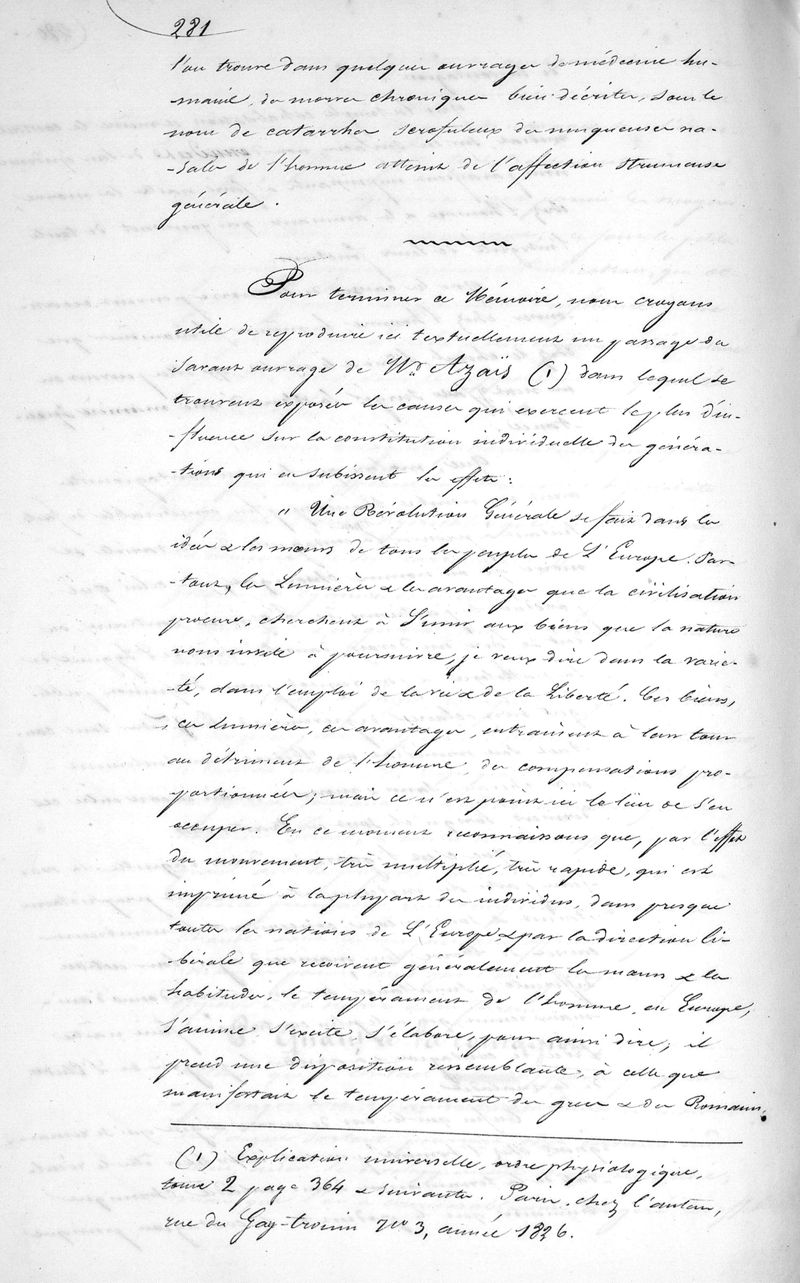 281
l'on trouve dans quelques ouvrages de médecine hu-
maine, des morves chroniques bien décrites, sous le
nom de catarrhes scrofuleux des muqueuses na-
-sales de l'homme atteint de l'affection strumeuse
générale.
Pour terminer ce Mémoire, nous croyons
utile de reproduire ici textuellement un passage du
savant ouvrage de Mr. Azaïs (1) dans lequel se
trouvent exposées les causes qui exercent le plus d'in-
-fluence sur la constitution individuelle des généra-
-tions qui en subissent les effets:
" Une Révolution Générale se fait dans les
idées & les mœurs de tous les peuples de L'Europe. Par-
-tout, les Lumières & les avantages que la civilisation
procure, cherchent à S'unir aux biens que la nature
nous invite à poursuivre, je veux dire dans la varié-
-té, dans l'emploi de la vie & de la Liberté. Ces biens,
ces lumières, ces avantages, entraînent à leur tour
au détriment de l'homme, des compensations pro-
-portionnées; mais ce n'est point ici le lieu de s'en
occuper. En ce moment reconnaissons que, par l'effet
du mouvement, très multiplié, très rapide, qui est
imprimé à la plupart des individus, dans presque
toutes les nations de L'Europe & par la direction li-
-bérale que reçoivent généralement les mœurs & les
habitudes, le tempérament de l'homme, en Europe,
s'anime s'excite s'élabore, pour ainsi dire; il
prend une disposition ressemblante, à celle que
manifestait le tempérament des grecs & des Romains.
(1) Explication universelle, ordre physiologique,
tome 2 page 364 & suivantes. Paris, chez l'auteur,
rue du Guay-trouin No 3, année 1826.